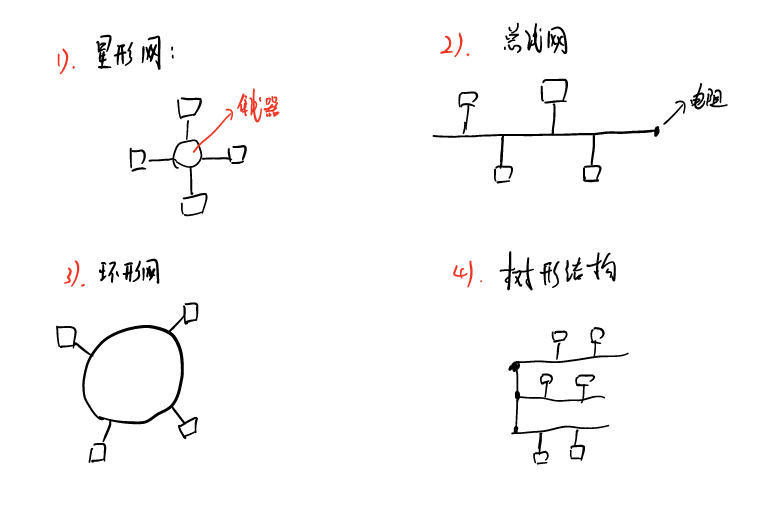 1). 星形网:
集线器
2). 总线网
电阻
3). 环形网
4). 树形结构